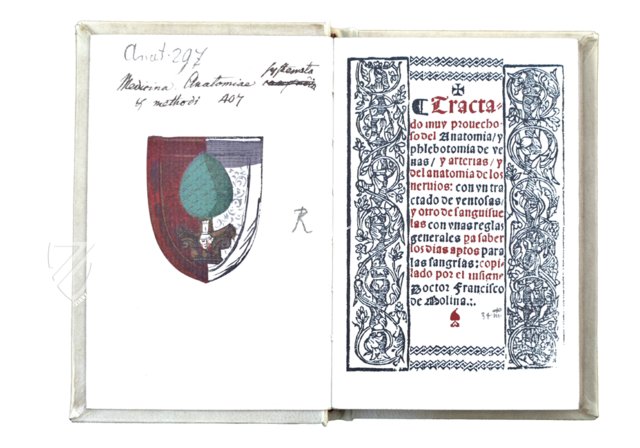 Anat. 297
Medicina Anatomiae systemata
& methodi 407
R
Tracta-
do muy prouecho-
so del Anatomia/ y
phlebotomia de ve
nas/ y arterias/ y
del anatomia de los
neruios: con vn tra
ctado de ventosas/
y otro de sanguisue
las con vnas reglas
generales pa saber
los dias aptos para
las sangrias: copi
lado por el insigne
Doctor Francisco
de Molina.:.